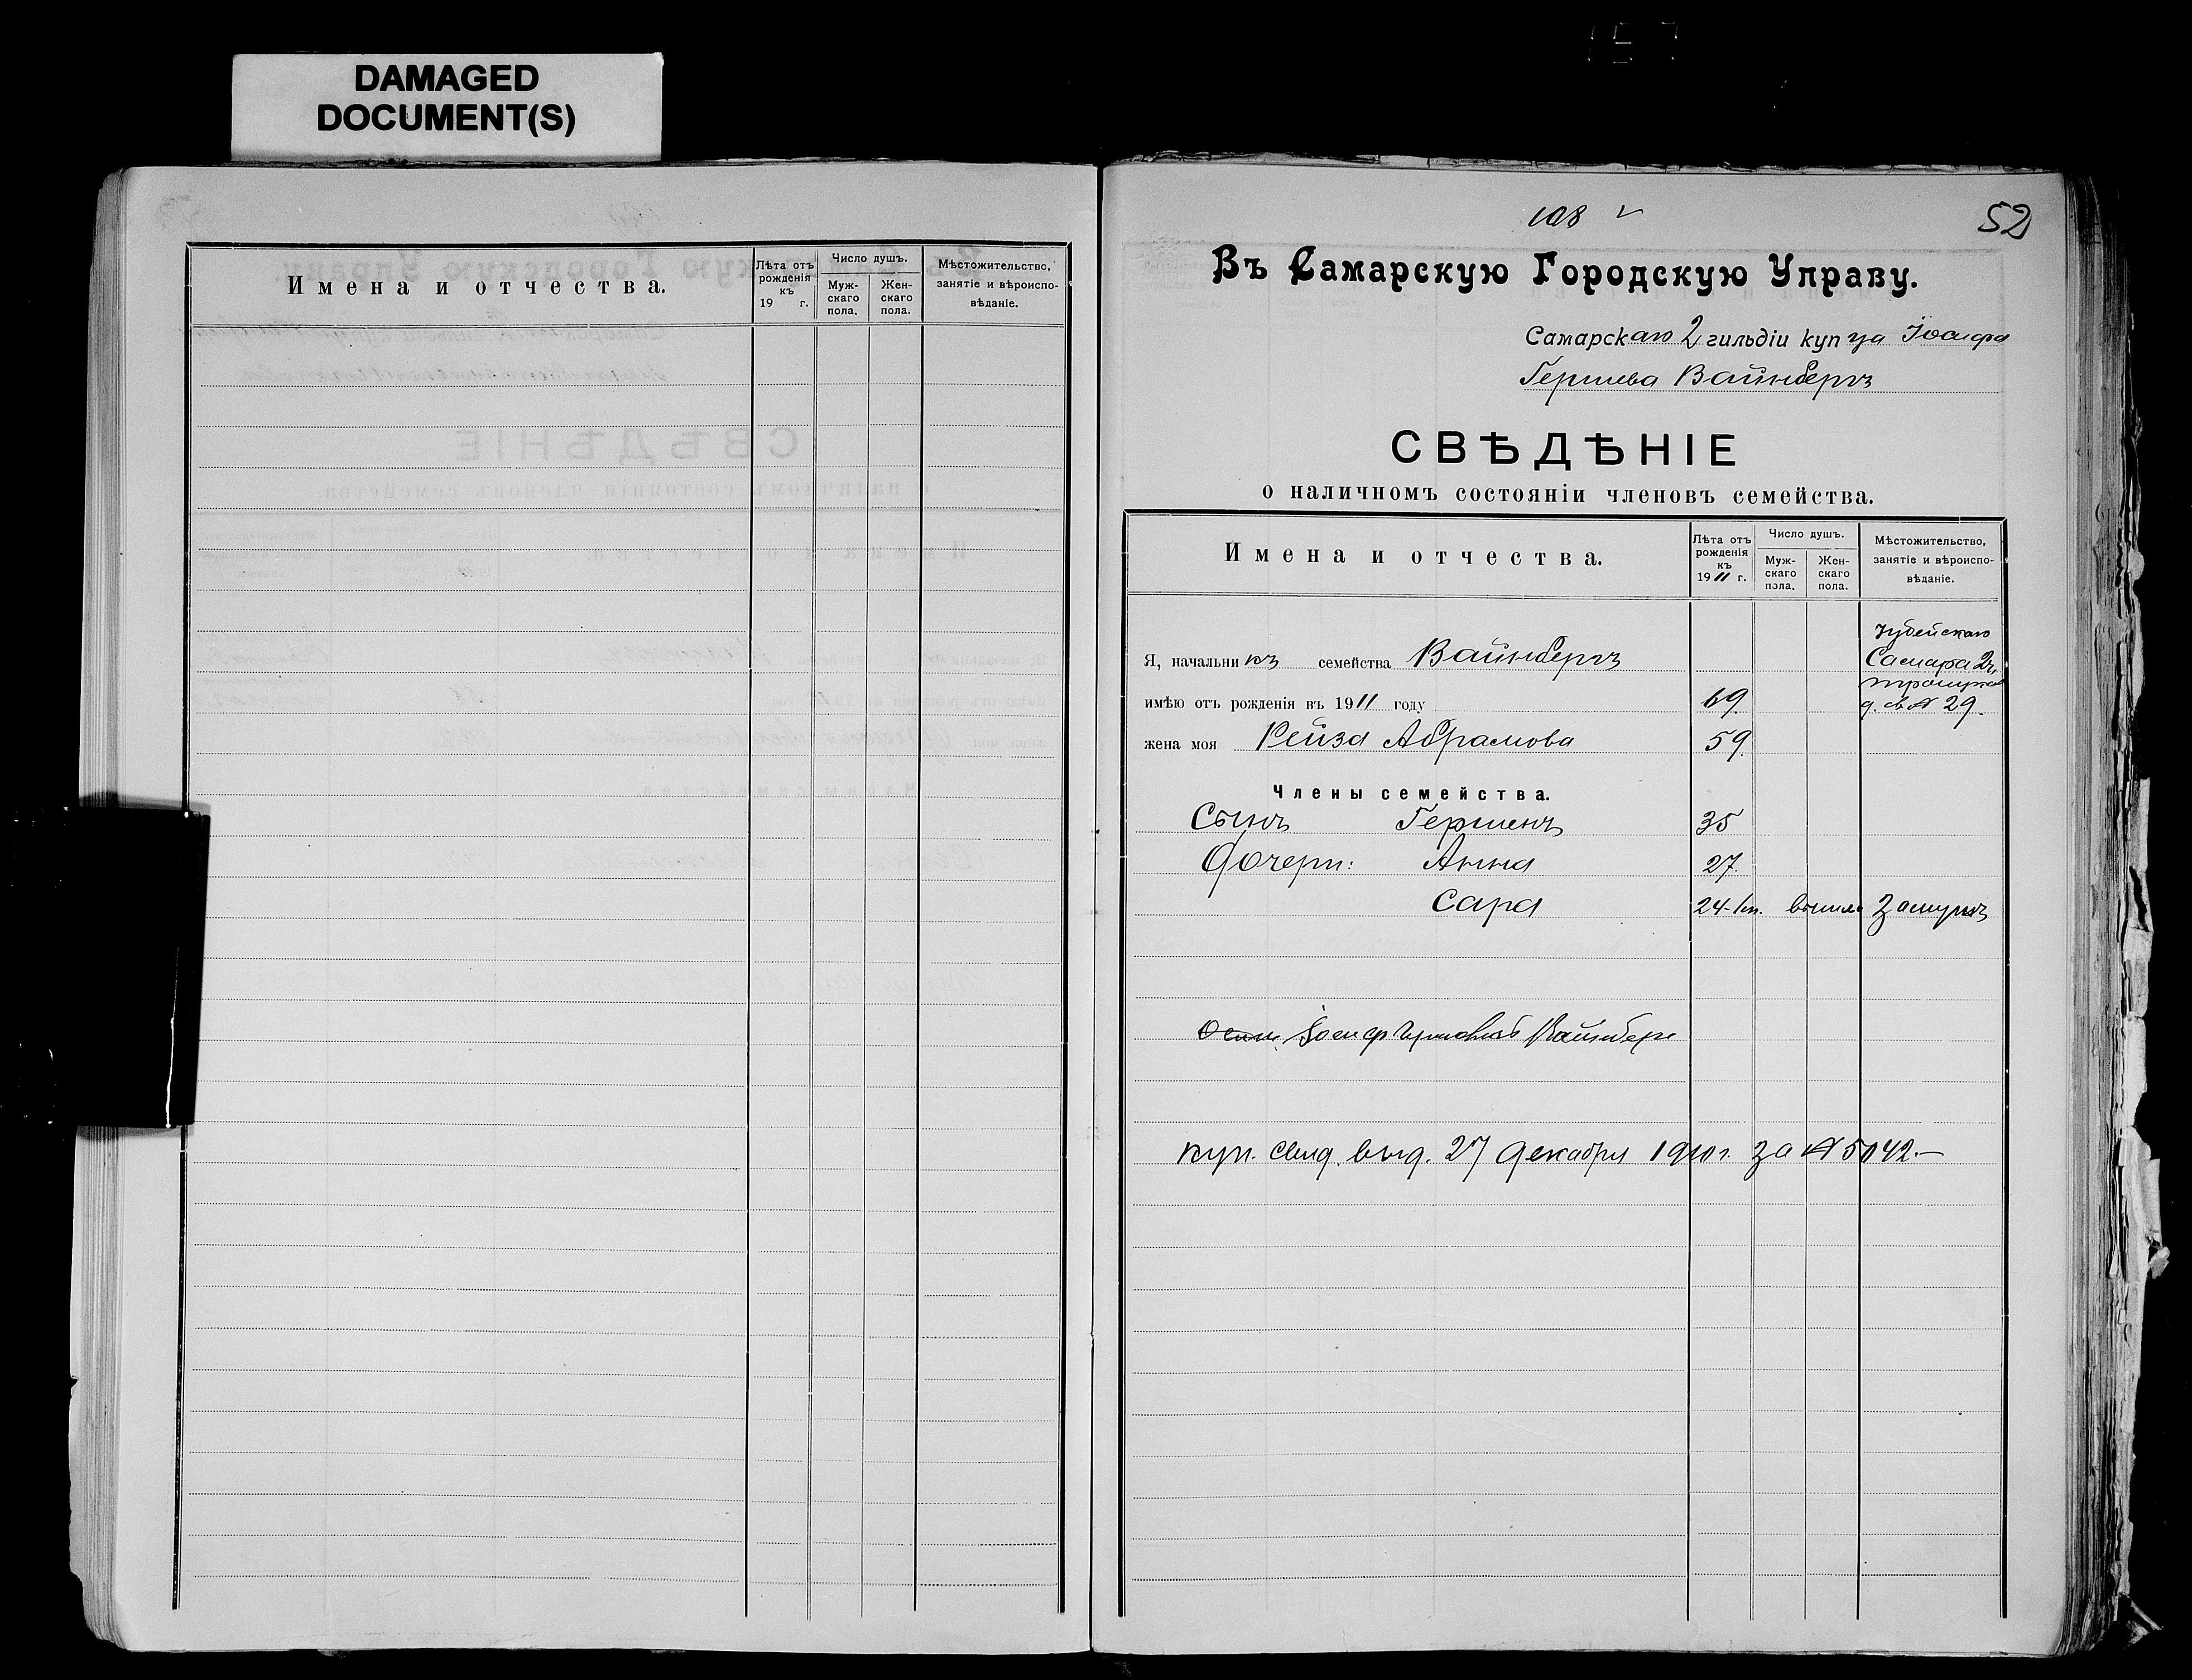 DAMAGED
DOCUMENT(S)
Имена и отчества.
Лѣта отъ рожденія къ 19 г.
Число душъ.
Муж-скаго пола.
Жен-скаго пола.
Мѣстожительство, занятіе и вѣроиспо-вѣданіе.
108 ✓
52
Въ Самарскую Городскую Управу.
Самарскаго 2 гильдіи купца Іосифа
Гершева Вайнбергъ
СВѢДѢНІЕ
о наличномъ состояніи членовъ семейства.
Имена и отчества.
Лѣта отъ рожденія къ 1911 г.
Число душъ.
Муж-скаго пола.
Жен-скаго пола.
Мѣстожительство, занятіе и вѣроиспо-вѣданіе.
Іудейскаго
Я, начальникъ семейства Вайнбергъ Самара 2ч.
имѣю отъ рожденія въ 1911 году 69. д. № 29.
жена моя Рейза Абрамова 59.
Члены семейства.
Сынъ Гершенъ 35
Дочери: Анна 27.
Сара 24 вышла замужъ
Іосиф Вайнберг
куп. свид. выд. 27 декабря 1910 г. за № 5042.—